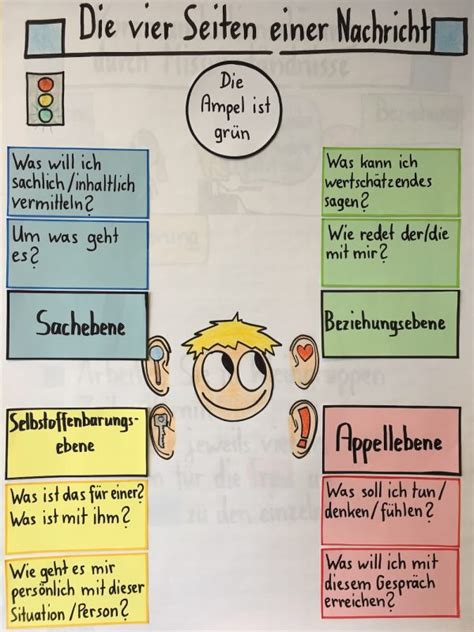 Die vier Seiten einer Nachricht
Die
Ampel ist
grün
Was will ich
sachlich/inhaltlich
vermitteln?
Um was geht
es?
Sachebene
Was kann ich
wertschätzendes
sagen?
Wie redet der/die
mit mir?
Beziehungsebene
Selbstoffenbarungs-
ebene
Was ist das für einer?
Was ist mit ihm?
Wie geht es mir
persönlich mit dieser
Situation/Person?
Appellebene
Was soll ich tun/
denken/fühlen?
Was will ich mit
diesem Gespräch
erreichen?